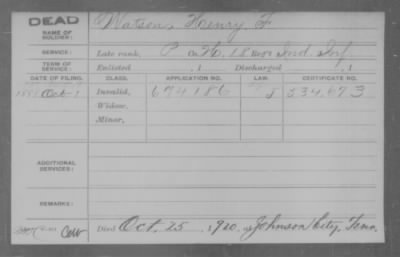 DEAD
Watson, Henry F
NAME OF
SOLDIER:
SERVICE:
Late rank, P Co. H, 18 Ind. Inf.
TERM OF
SERVICE:
Enlisted , 1 Discharged , 1
DATE OF FILING. CLASS. APPLICATION NO. LAW. CERTIFICATE NO.
Oct 1 Invalid, 674186 534,673
Widow,
Minor,
ADDITIONAL
SERVICES:
REMARKS:
Died Oct. 25, 1920, at Johnson City, Tenn.